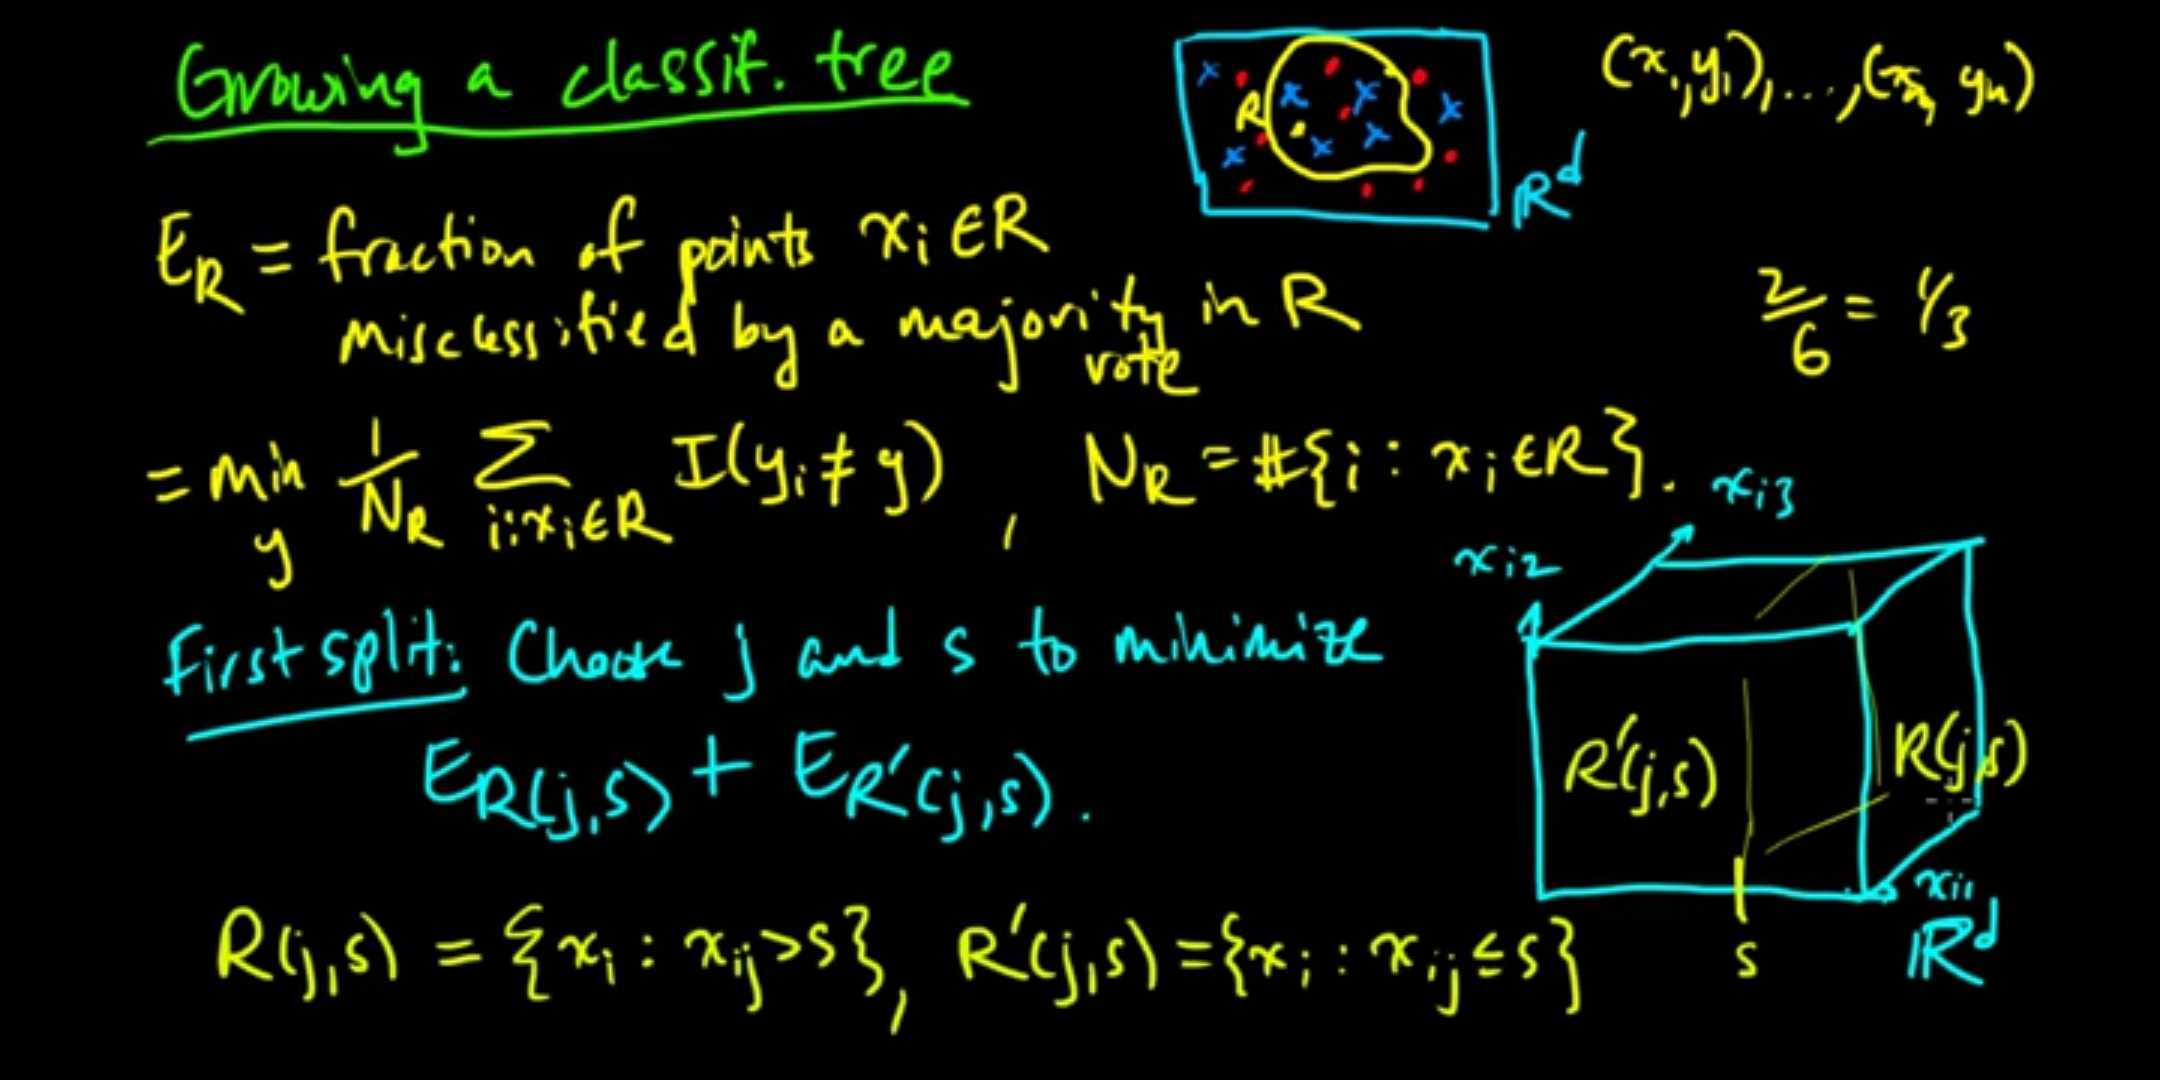 Growing a classif. tree
(x₁, y₁), ..., (xₙ, yₙ)
R
ℝᵈ
E_R = fraction of points xᵢ ∈ R
misclassified by a majority vote in R
2/6 = 1/3
= min_y 1/N_R Σ_{i: xᵢ∈R} I(yᵢ ≠ y) , N_R = #{i : xᵢ ∈ R}.
xᵢ₃
xᵢ₂
First split: Choose j and s to minimize
E_R(j,s) + E_R'(j,s) .
R'(j,s)
R(j,s)
xᵢ₁
ℝᵈ
s
R(j,s) = {xᵢ : xᵢⱼ > s}, R'(j,s) = {xᵢ : xᵢⱼ ≤ s}